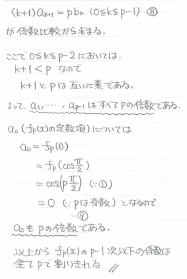 (k+1)a_{k+1} = pb_k (0≦k≦p-1) ⑧
が係数比較から求まる。
ここで 0≦k≦p-2 においては、
k+1<p なので
k+1とpは互いに素である。
よって、a_1, …, a_{p-1} はすべてpの倍数である。
a_0 (f_p(x)の定数項) については
a_0 = f_p(0)
= f_p(cos π/2)
= cos(p π/2) (∵①)
= 0 (∵pは奇数) となるので
⑨
a_0もpの倍数である。
以上から f_p(x)のp-1次以下の係数は
全てpで割りきれる //